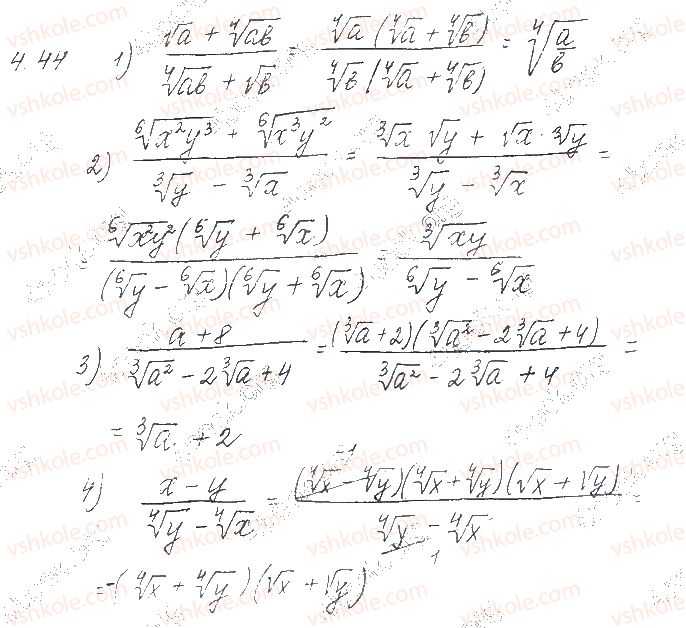 4.44 1) (√a + ⁴√ab)/(⁴√ab + √b) = ⁴√a (⁴√a + ⁴√b)/⁴√b (⁴√a + ⁴√b) = ⁴√(a/b)
2) (⁶√x²y³ + ⁶√x³y²)/(³√y - ³√x) = (³√x √y + √x · ³√y)/(³√y - ³√x) =
= ⁶√x²y² (⁶√y + ⁶√x)/(⁶√y - ⁶√x)(⁶√y + ⁶√x) = ³√xy/(⁶√y - ⁶√x)
3) (a + 8)/(³√a² - 2³√a + 4) = (³√a + 2)(³√a² - 2³√a + 4)/(³√a² - 2³√a + 4) =
= ³√a + 2
4) (x - y)/(⁴√y - ⁴√x) = (⁴√x - ⁴√y)(⁴√x + ⁴√y)(√x + √y)/(⁴√y - ⁴√x) =
-1
1
= -(⁴√x + ⁴√y)(√x + √y)
vshkole.com